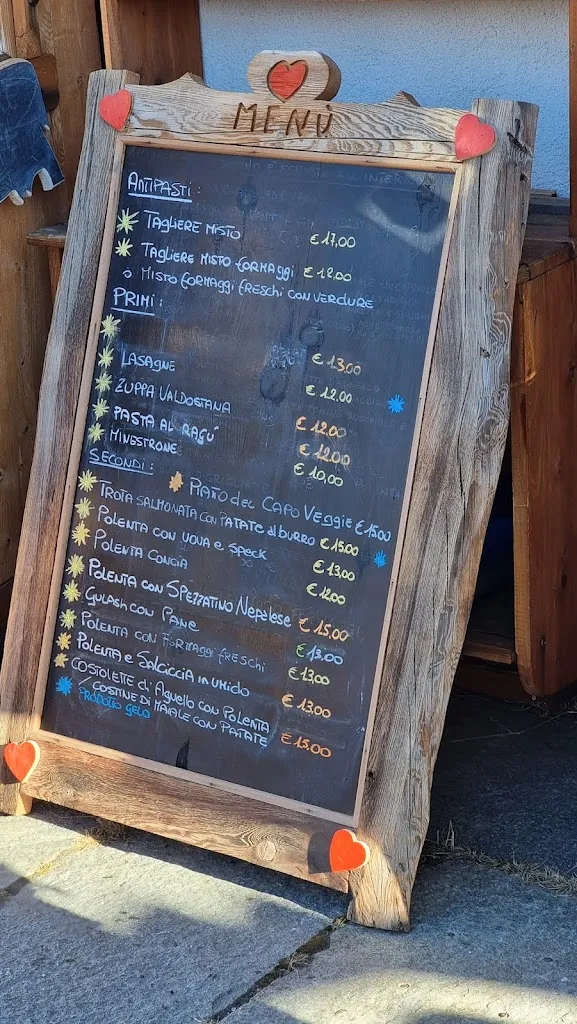 MENÙ
ANTIPASTI:
TAGLIERE MISTO € 17,00
TAGLIERE MISTO FORMAGGI € 18.00
O MISTO FORMAGGI FRESCHI CON VERDURE
PRIMI:
LASAGNE € 13,00
ZUPPA VALDOSTANA € 12.00
PASTA AL RAGÚ € 12.00
€ 12.00
MINESTRONE € 10,00
SECONDI:
PIATO DEL CAPO VEGGIE € 15.00
TROTA SALMONATA CON PATATE al BURRO € 15.00
POLENTA CON UOVA e SPECK € 13,00
POLENTA CONCIA € 12.00
POLENTA CON SPEZZATINO NEPALESE € 15,00
GULASH CON PANE € 13.00
POLENTA CON FORMAGGI FRESCHI € 13.00
POLENTA E SALCICCIA IN UMIDO € 13.00
COSTOLETTE di AGNELLO CON POLENTA
/ COSTINE DI MAIALE CON PATATE € 15.00
PRODOTTO GELO